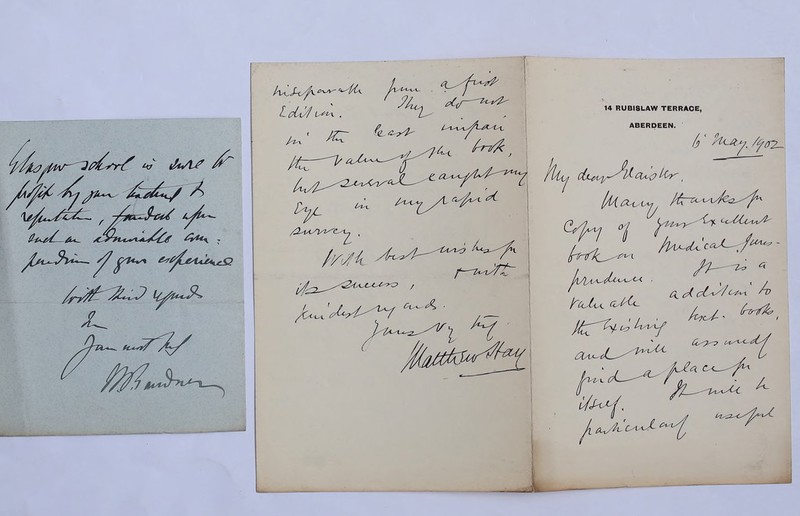 Glasgow school is sure to
profit by your teaching &
reputation, founded upon
such an admirable com-
pendium of your experience
With kind regards
I am
your most try
14 RUBISLAW TERRACE,
ABERDEEN.
6 May, 1902
My dear Glaister,
Many thanks for
copy of your excellent
book on Medical Juris-
prudence. It is a
valuable addition to
the existing text-books,
and will assuredly
find a place for
itself. It will be
particularly useful
inseparable from a first
Edition. They do not
in the least impair
the value of the book,
but several caught my
eye in my rapid
survey.
With best wishes for
its success, & with
kindest regards.
Yours Vy try
Matthew Hay